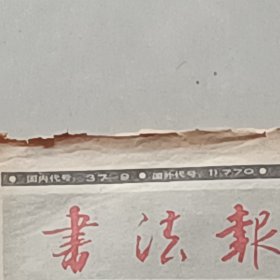 ●国内代号：37—9 ●国外代号：11770●
書法報